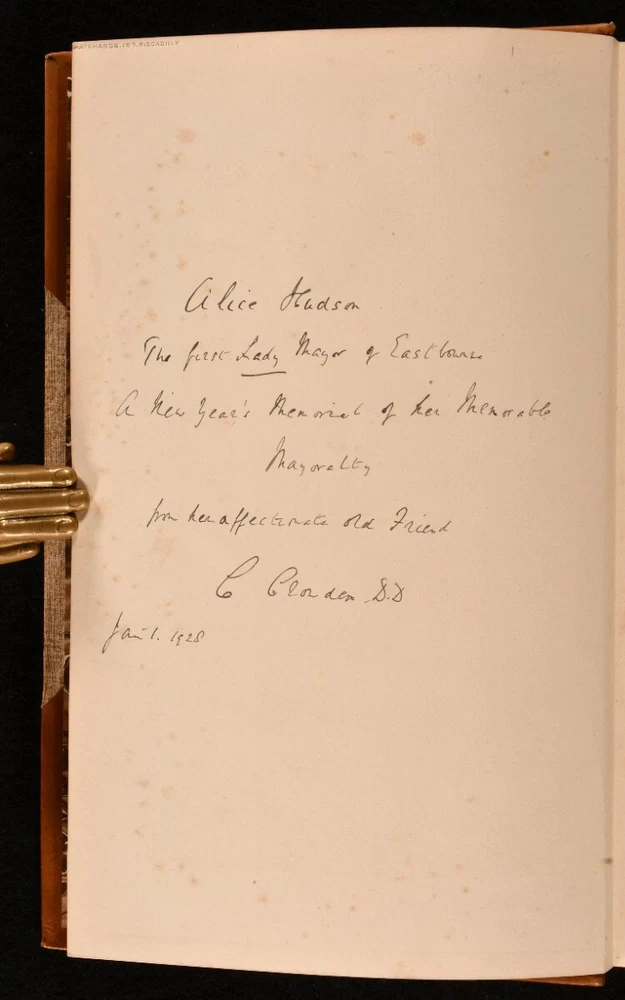 HATCHARDS, 187, PICCADILLY
Alice Hudson
The first Lady Mayor of Eastbourne
A New Year's Memorial of her Memorable
Mayoralty
from her affectionate old Friend
C D.D
Jan 1. 1928